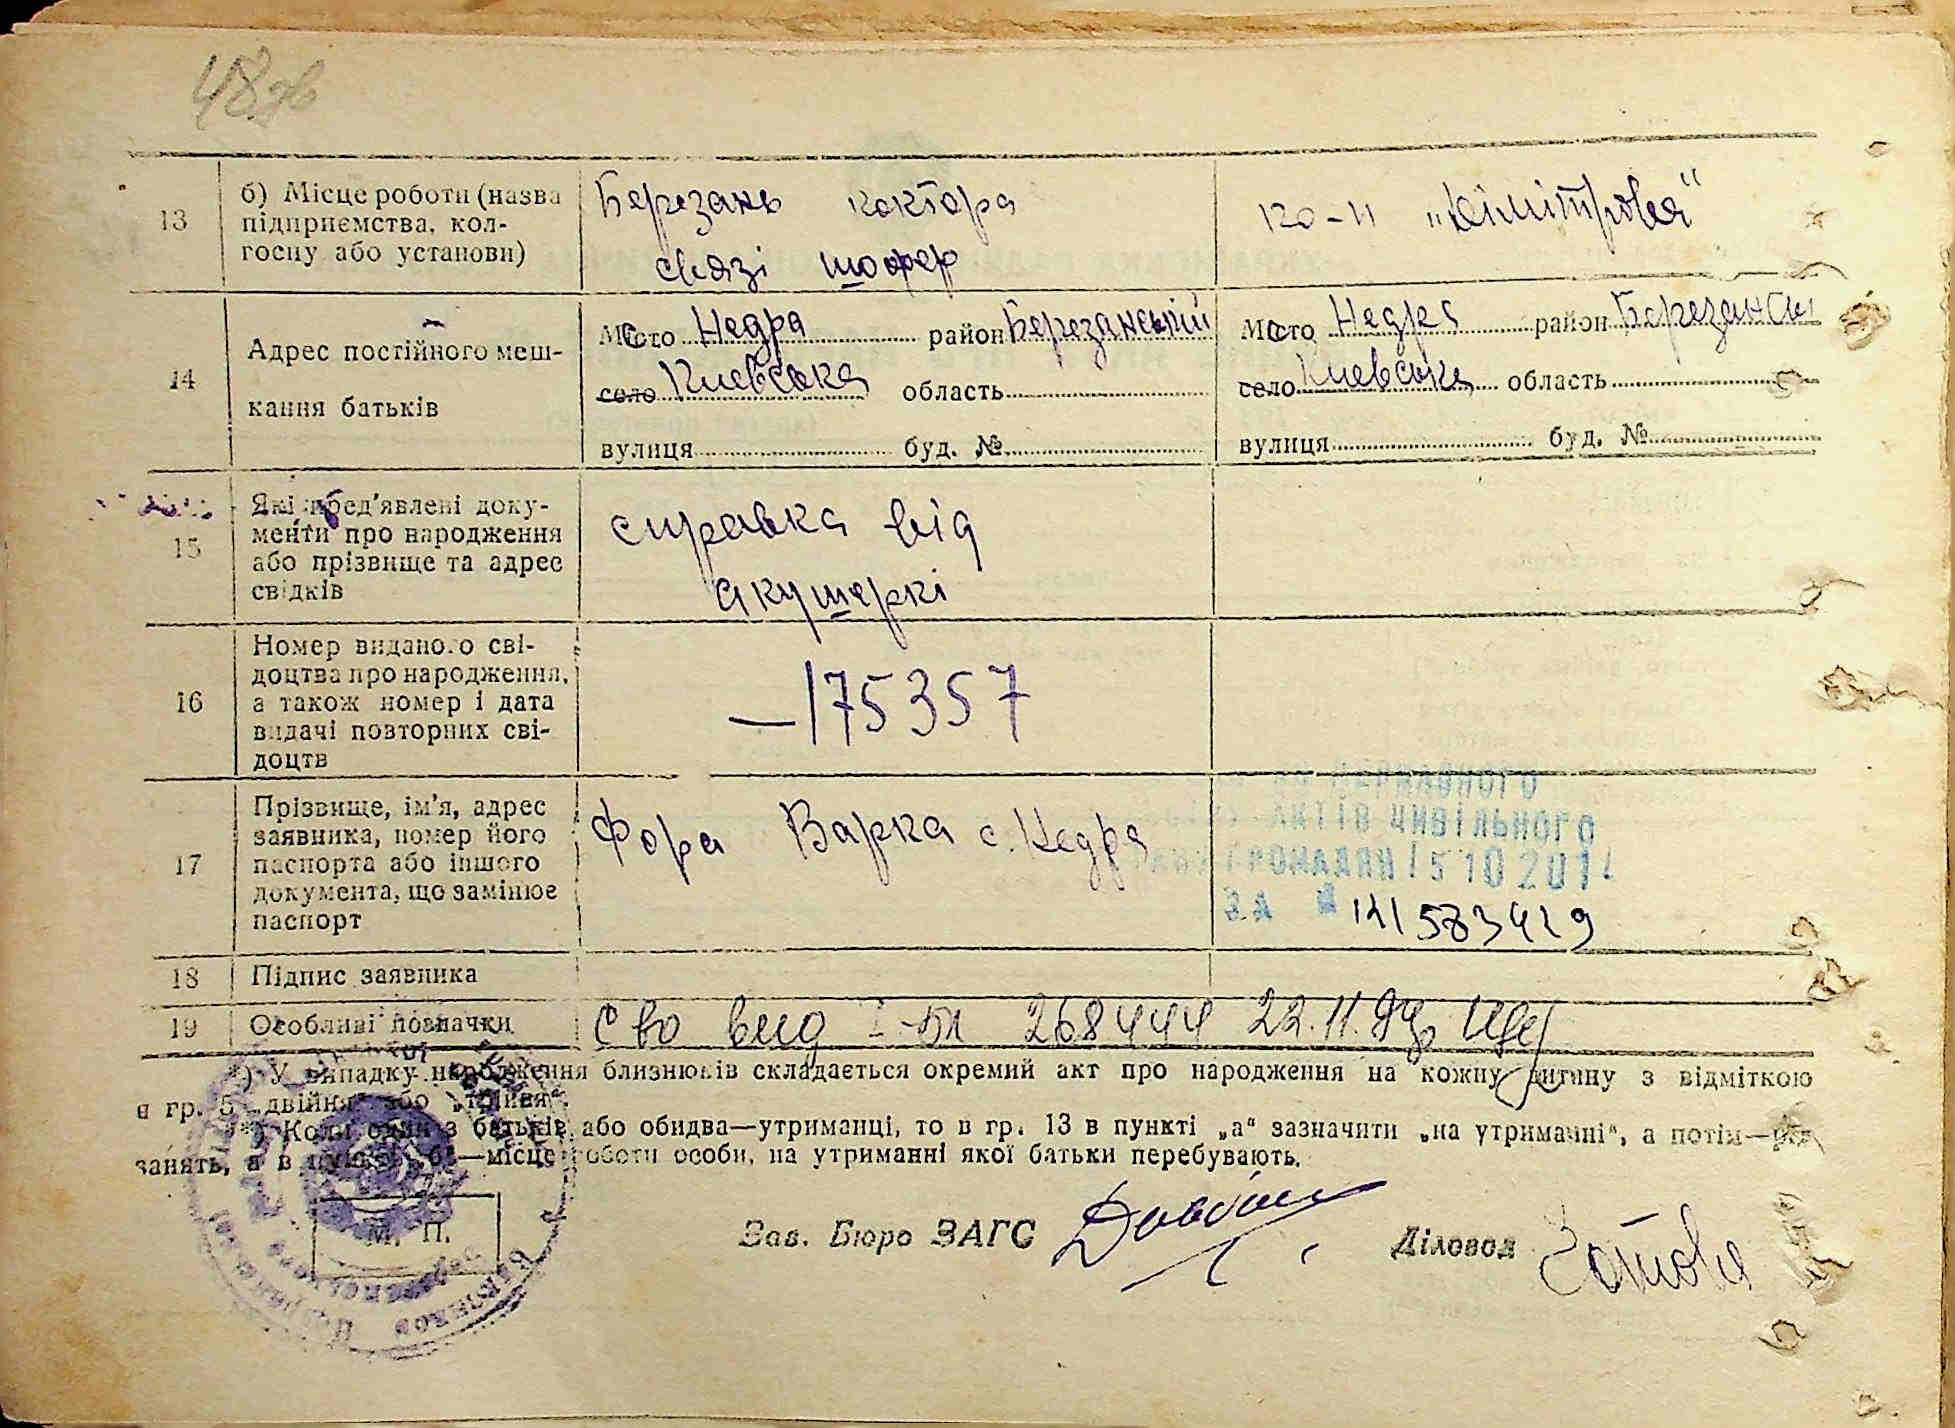 48 зв
13
б) Місце роботи (назва
підприємства, кол-
госпу або установи)
Березань контора
связі шофер
к-п „Дімітрова“
14
Адрес постійного меш-
кання батьків
Місто Недра район Березанський
село Киевська область
вулиця буд. №
Місто Недра район Березанськ
село Киевська область
вулиця буд. №
15
Які пред'явлені доку-
менти про народження
або прізвище та адрес
свідків
справка від
акушеркі
16
Номер виданого сві-
доцтва про народження,
а також номер і дата
видачі повторних сві-
доцтв
—175357
17
Прізвище, ім'я, адрес
заявника, номер його
паспорта або іншого
документа, що замінює
паспорт
Фора Варка с. Недра
ДЕРЖАВНОГО
АКТІВ ЦИВІЛЬНОГО
ГРОМАДЯН 15 10 201
ЗА №
18
Підпис заявника
19
Особливі позначки
Сво вид І-БК 268444 22.11.94р
*) У випадку народження близнюків складається окремий акт про народження на кожну дитину з відміткою
в гр. 5 „двійня“ або „трійня“.
**) Коли один з батьків або обидва—утриманці, то в гр. 13 в пункті „а“ зазначити „на утриманні“, а потім—рід
занять, а в пункті „б“—місце роботи особи, на утриманні якої батьки перебувають.
М. П.
Зав. Бюро ЗАГС
Діловод Зотова